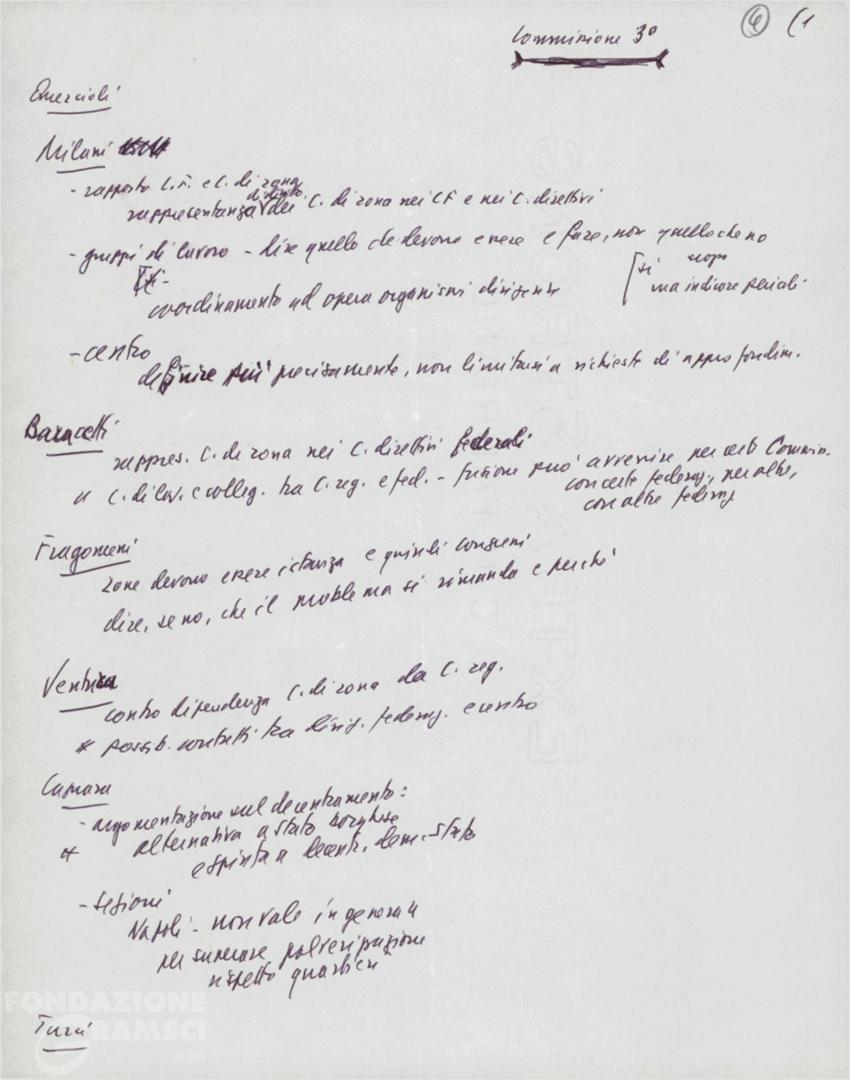 Commissione 3º
6 (1
Quercioli
Milani
- rapporto C.F. e C. di zona
diretta
rappresentanza dei C. di zona nei CF e nei C. direttivi
- gruppi di lavoro - dire quello che devono essere e fare, non quello che no
[si
coordinamento ed opera organismi dirigenti
ma indicare pericoli
- centro
definire più precisamente, non limitarsi a richieste di approfondim.
Baracetti
rappres. C. di zona nei C. direttivi federali
C. di lav. e colleg. tra C. reg. e fed. - funzione può avvenire per certi Commiss.
con certe federaz., per altre,
con altre federaz
Fragomeni
zone devono essere istanza e quindi congressi
dire, se no, che il problema si rimanda e perché
Ventura
contro dipendenza C. di zona da C. reg.
* possib. contatti tra dirig. federaz. e centro
Camara
- argomentazione sul decentramento:
alternativa a stato borghese
e spinta a decentr. dem. stato
- sezioni
Napoli - non vale in generale
per superare polverizzazione
rispetto quartieri
Turci
FONDAZIONE
GRAMSCI
onlus